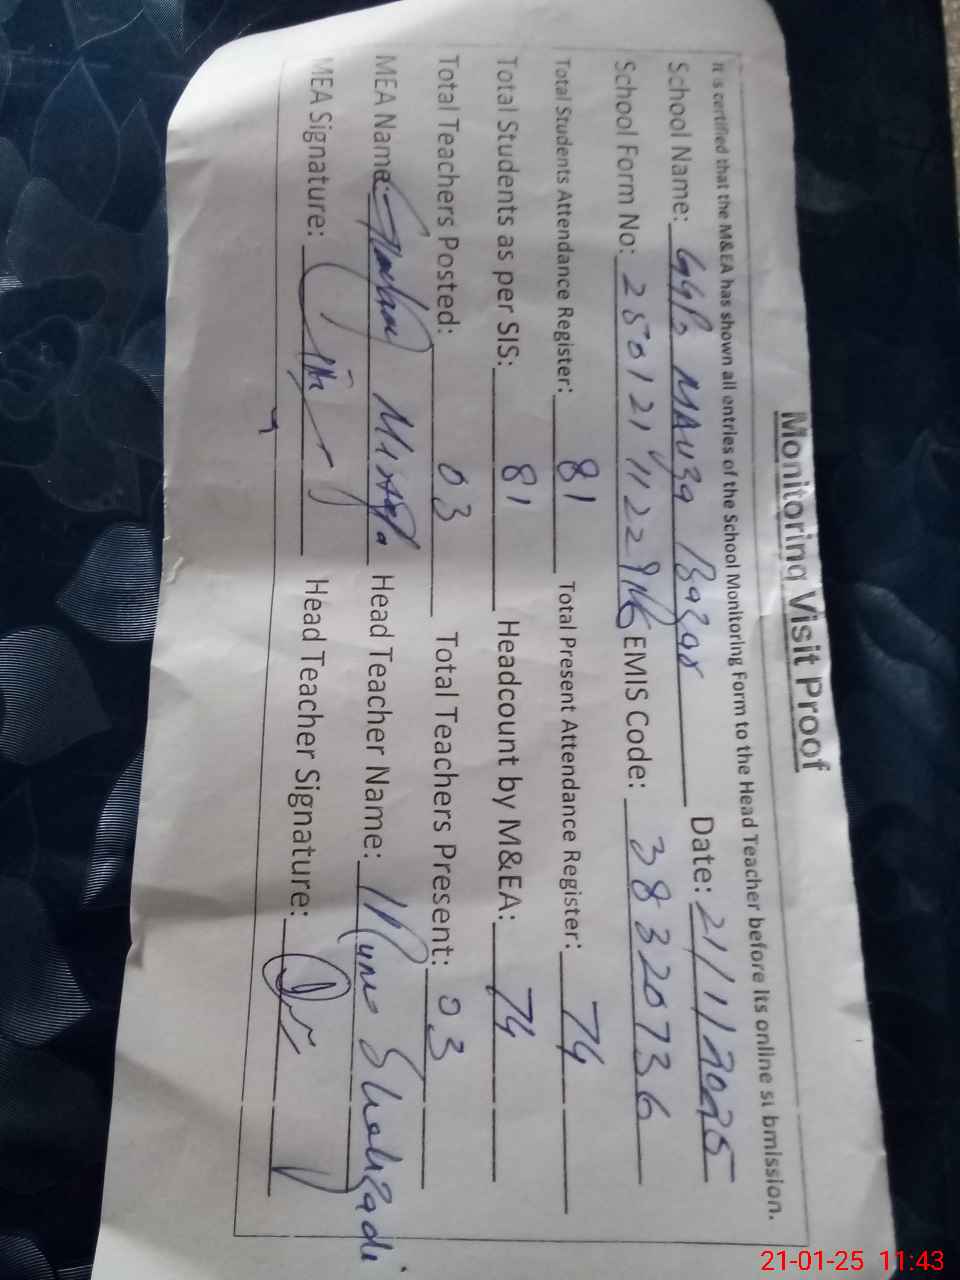 Monitoring Visit Proof
It is certified that the M&EA has shown all entries of the School Monitoring Form to the Head Teacher before its online submission.
School Name: GGPS MAUZA Bazar Date: 21/1/2025
School Form No: EMIS Code: 38320736
Total Students Attendance Register: 81 Total Present Attendance Register: 74
Total Students as per SIS: 81 Headcount by M&EA: 74
Total Teachers Posted: 03 Total Teachers Present: 03
MEA Name: Head Teacher Name: Shahzadi
MEA Signature: Head Teacher Signature:
21-01-25 11:43